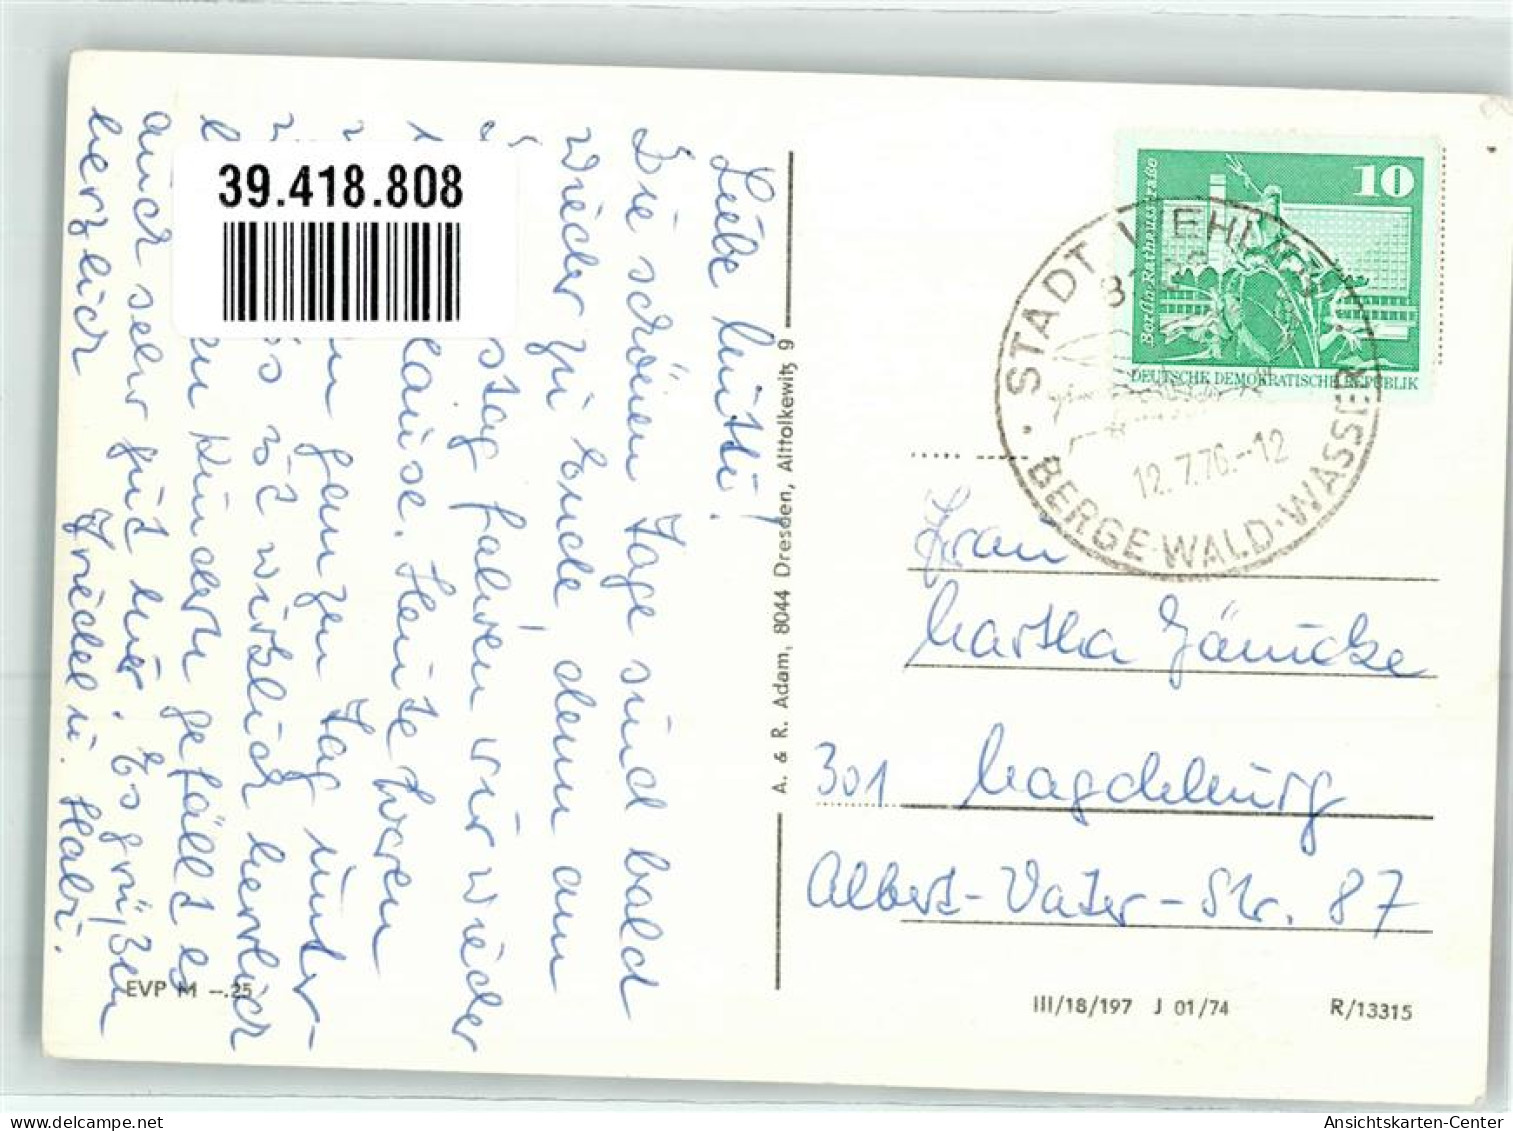 39.418.808
Liebe Mutti!
Die schönen Tage sind bald
wieder zu Ende, denn am
stag fahren wir wieder
lause. Heute waren
ganzen Tag unter-
ist wirklich herrlich
Kindern gefällt es
auch sehr gut hier. Es grüßen
herzlich Friedel u. Halu.
EVP M –.25
A. & R. Adam, 8044 Dresden, Alttolkewitz 9
10
Berlin-Rathausstraße
DEUTSCHE DEMOKRATISCHE REPUBLIK
STADT WEHLEN
12.7.76.-12
BERGE·WALD·WASSER
Frau
Martha Jänicke
301 Magdeburg
Albert-Vater-Str. 87
III/18/197 J 01/74 R/13315
Ansichtskarten-Center